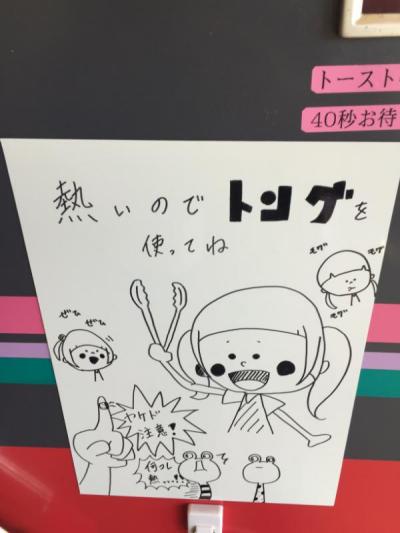 トースト
40秒お待
熱いので トングを
使ってね
モグ
モグ
モグ
ぜひ
ぜひ
ヤケド
注意!
何コレ
熱…!!